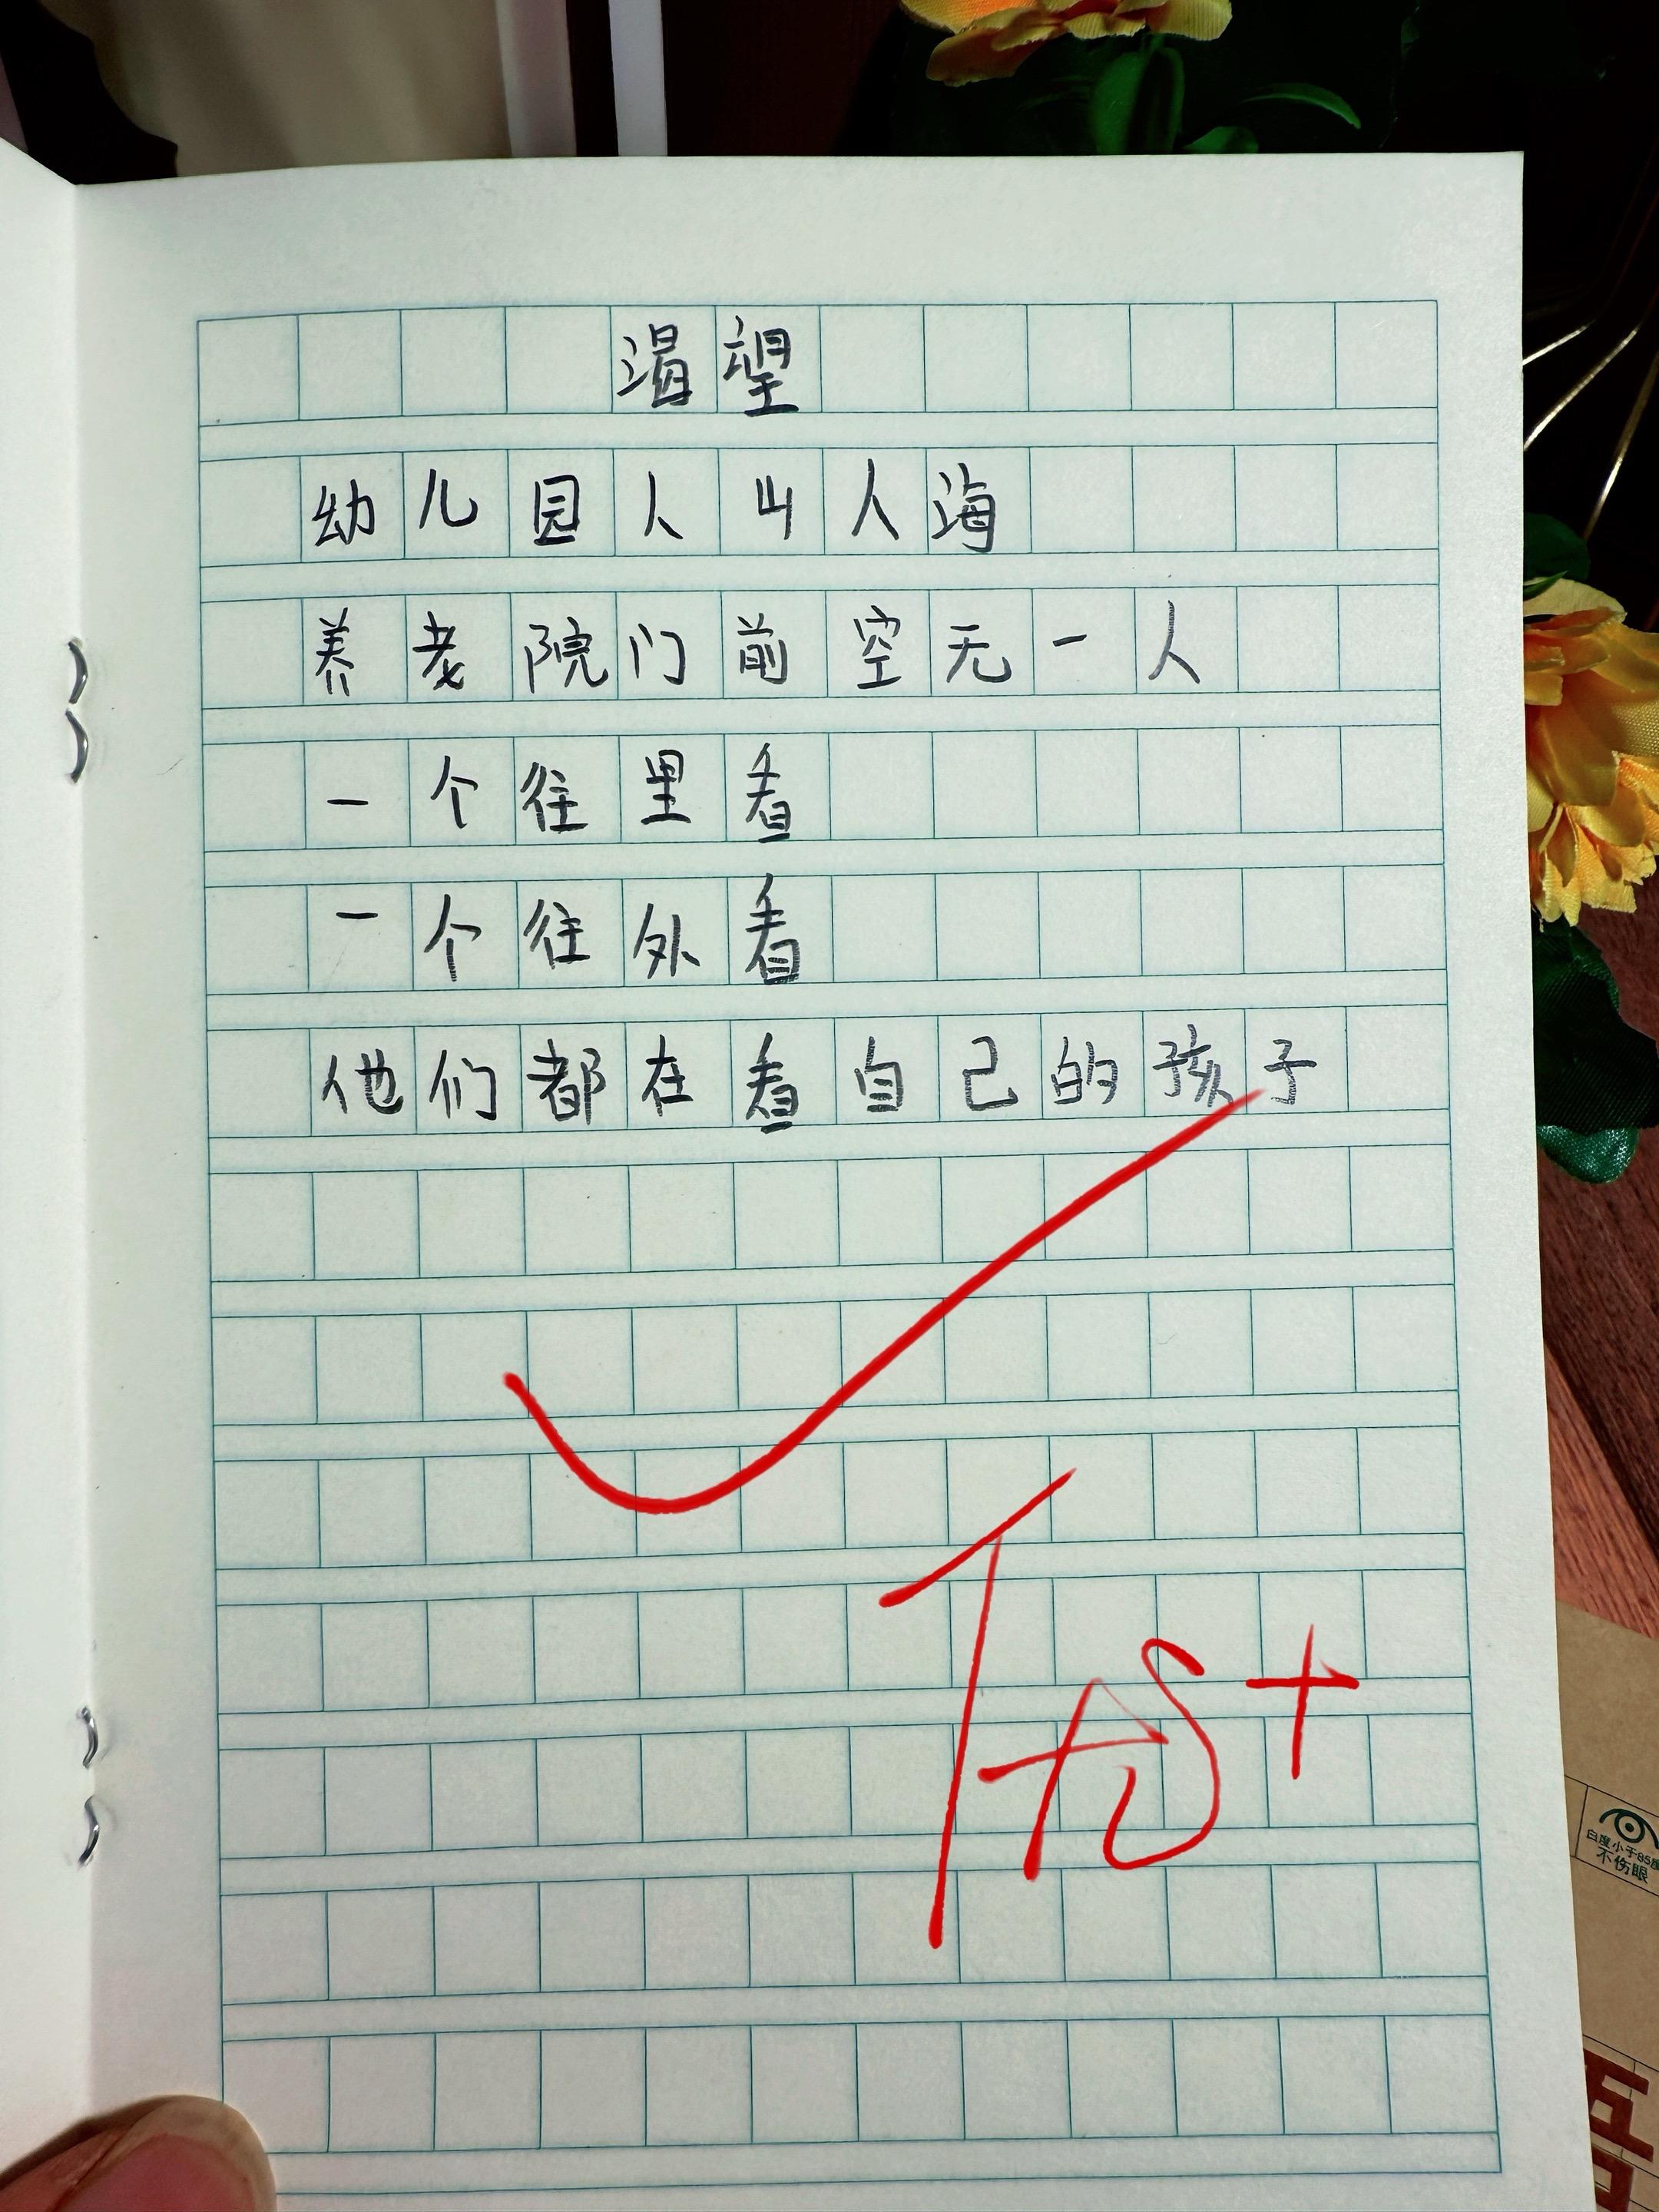 渴望
幼儿园人山人海
养老院门前空无一人
一个往里看
一个往外看
他们都在看自己的孩子
白度小于85度
不伤眼